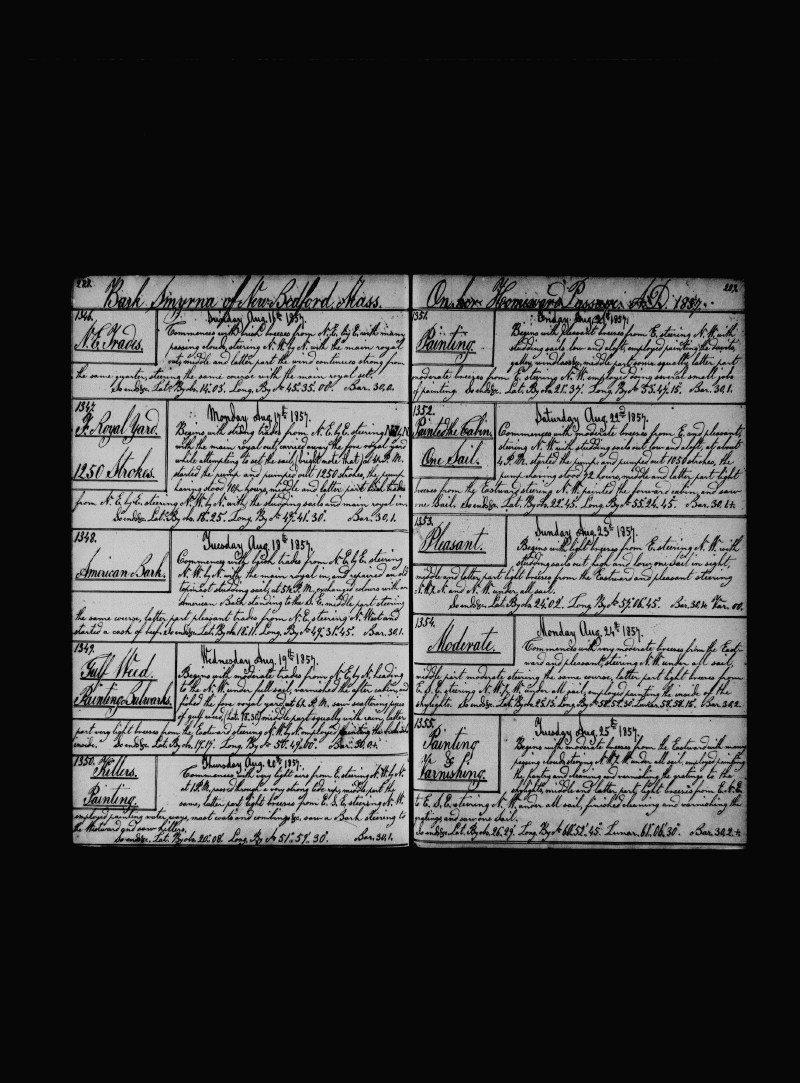 Bark Smyrna of New Bedford, Mass.
1346.
N. E. Trades.
Sunday Aug. 16th 1857.
Commences with fresh breezes from N. E. by E. with many
passing clouds, steering N. W. by N. with the main royal
out, middle and latter part the wind continues strong from
the same quarter, steering the same course with the main royal set.
So ends &c. Lat. By obs. 14.03. Long. By Ch 45.35.00. Bar. 30,0.
1347.
F. Royal Yard.
1250 Strokes.
Monday Aug. 17th 1857.
Begins with strong trades from N. E. by E. steering
with the main royal out, carried away the fore royal yard
while attempting to set the sail, (bright note that) 4 P.M.
started the pump and pumped out 1250 strokes, the pump
having stood hours, middle and latter part trades
from N. E. by E. steering N. W. by N. with the studding sails and main royal in.
So ends &c. Lat. By obs. 16.25. Long. By Ch 47.41.30. Bar. 30,1.
1348.
American Bark.
Tuesday Aug. 18th 1857.
Commences with fresh trades from N. E. by E. steering
N. W. by N. with the main royal in, and repaired an old
topmast studding sail, at 5 P.M. exchanged colours with an
American Bark standing to the S. E. middle part steering
the same course, latter part pleasant trades from N. E. steering N. West and
started a cask of beef. So ends &c. Lat. By obs. 18.11. Long. By Ch 49.31.45. Bar. 30,1.
1349.
Gulf Weed.
Painting Bulwarks.
Wednesday Aug. 19th 1857.
Begins with moderate trades from N. E. by N. heading
to the N. W. under full sail, varnished the after cabin, and
fished the fore royal yard, at 6 P.M. saw scattering pieces
of gulf weed, (Lat. 18.30) middle part squally with rain, latter
part very light breezes from the Eastward steering N. W. by N. employed painting the bulwarks
inside. So ends &c. Lat. By obs. 19.19. Long. By Ch 50.49.00. Bar. 30,0+.
1350.
Killers.
Painting.
Thursday Aug. 20th 1857.
Commences with very light airs from E. steering N. W. by N.
at 1 P.M. passed through a very strong tide rip, middle part the
same, latter part light breezes from E. S. E. steering N. W.
employed painting water ways, mast coats and combings &c. saw a Bark steering to
the Westward and saw killers.
So ends &c. Lat. By obs. 20.08. Long. By Ch 51.51.30. Bar. 30,1.
On her Homeward Passage. A.D. 1857.
1351.
Painting.
Friday Aug. 21st 1857.
Begins with pleasant breezes from E. steering N. W. with
studding sails low and aloft, employed painting the davits,
galley, windlass &c, middle part some squally, latter part
moderate breezes from E. steering N. W. employed doing several small jobs
of painting. So ends &c. Lat. By obs. 21.37. Long. By Ch 53.47.15. Bar. 30,1.
1352.
Painted the Cabin.
One Sail.
Saturday Aug. 22nd 1857.
Commences with moderate breezes from E. and pleasant,
steering N. W. with studding sails out low and aloft, at about
4 P.M. started the pump, and pumped out 1050 strokes, the
pump having stood 72 hours, middle and latter part light
breezes from the Eastward steering N. W. painted the forward cabin, and saw
one Sail. So ends &c. Lat. By obs. 22.45. Long. By Ch 55.24.45. Bar. 30,1+.
1353.
Pleasant.
Sunday Aug. 23rd 1857.
Begins with light breezes from E. steering N. W. with
studding sails out high and low, one sail in sight,
middle and latter part light breezes from the Eastward and pleasant steering
and N. W. under all sail.
So ends &c. Lat. By obs. 24.02. Long. By Ch 57.06.45. Bar. 30,1+. Var. 00.
1354.
Moderate.
Monday Aug. 24th 1857.
Commences with very moderate breezes from the East-
ward and pleasant, steering N. W. under all sail,
middle part moderate steering the same course, latter part light breezes from
E. S. E. steering under all sail, employed painting the inside of the
skylights. So ends &c. Lat. By obs. 25.13. Long. By Ch 58.57.30. Lunar. 58.58.16. Bar. 30,2.
1355.
Painting
& Varnishing.
Tuesday Aug. 25th 1857.
Begins with moderate breezes from the Eastward with many
passing clouds, steering under all sail, employed painting
the pantry and cleaning and varnishing the gratings to the
skylights, middle and latter part light breezes from E. N. E.
to E. S. E. steering under all sail, finished cleaning and varnishing the
gratings and saw one Sail.
So ends &c. Lat. By obs. 26.29. Long. By Ch 60.52.45. Lunar. 61.06.30. Bar. 30,2+.